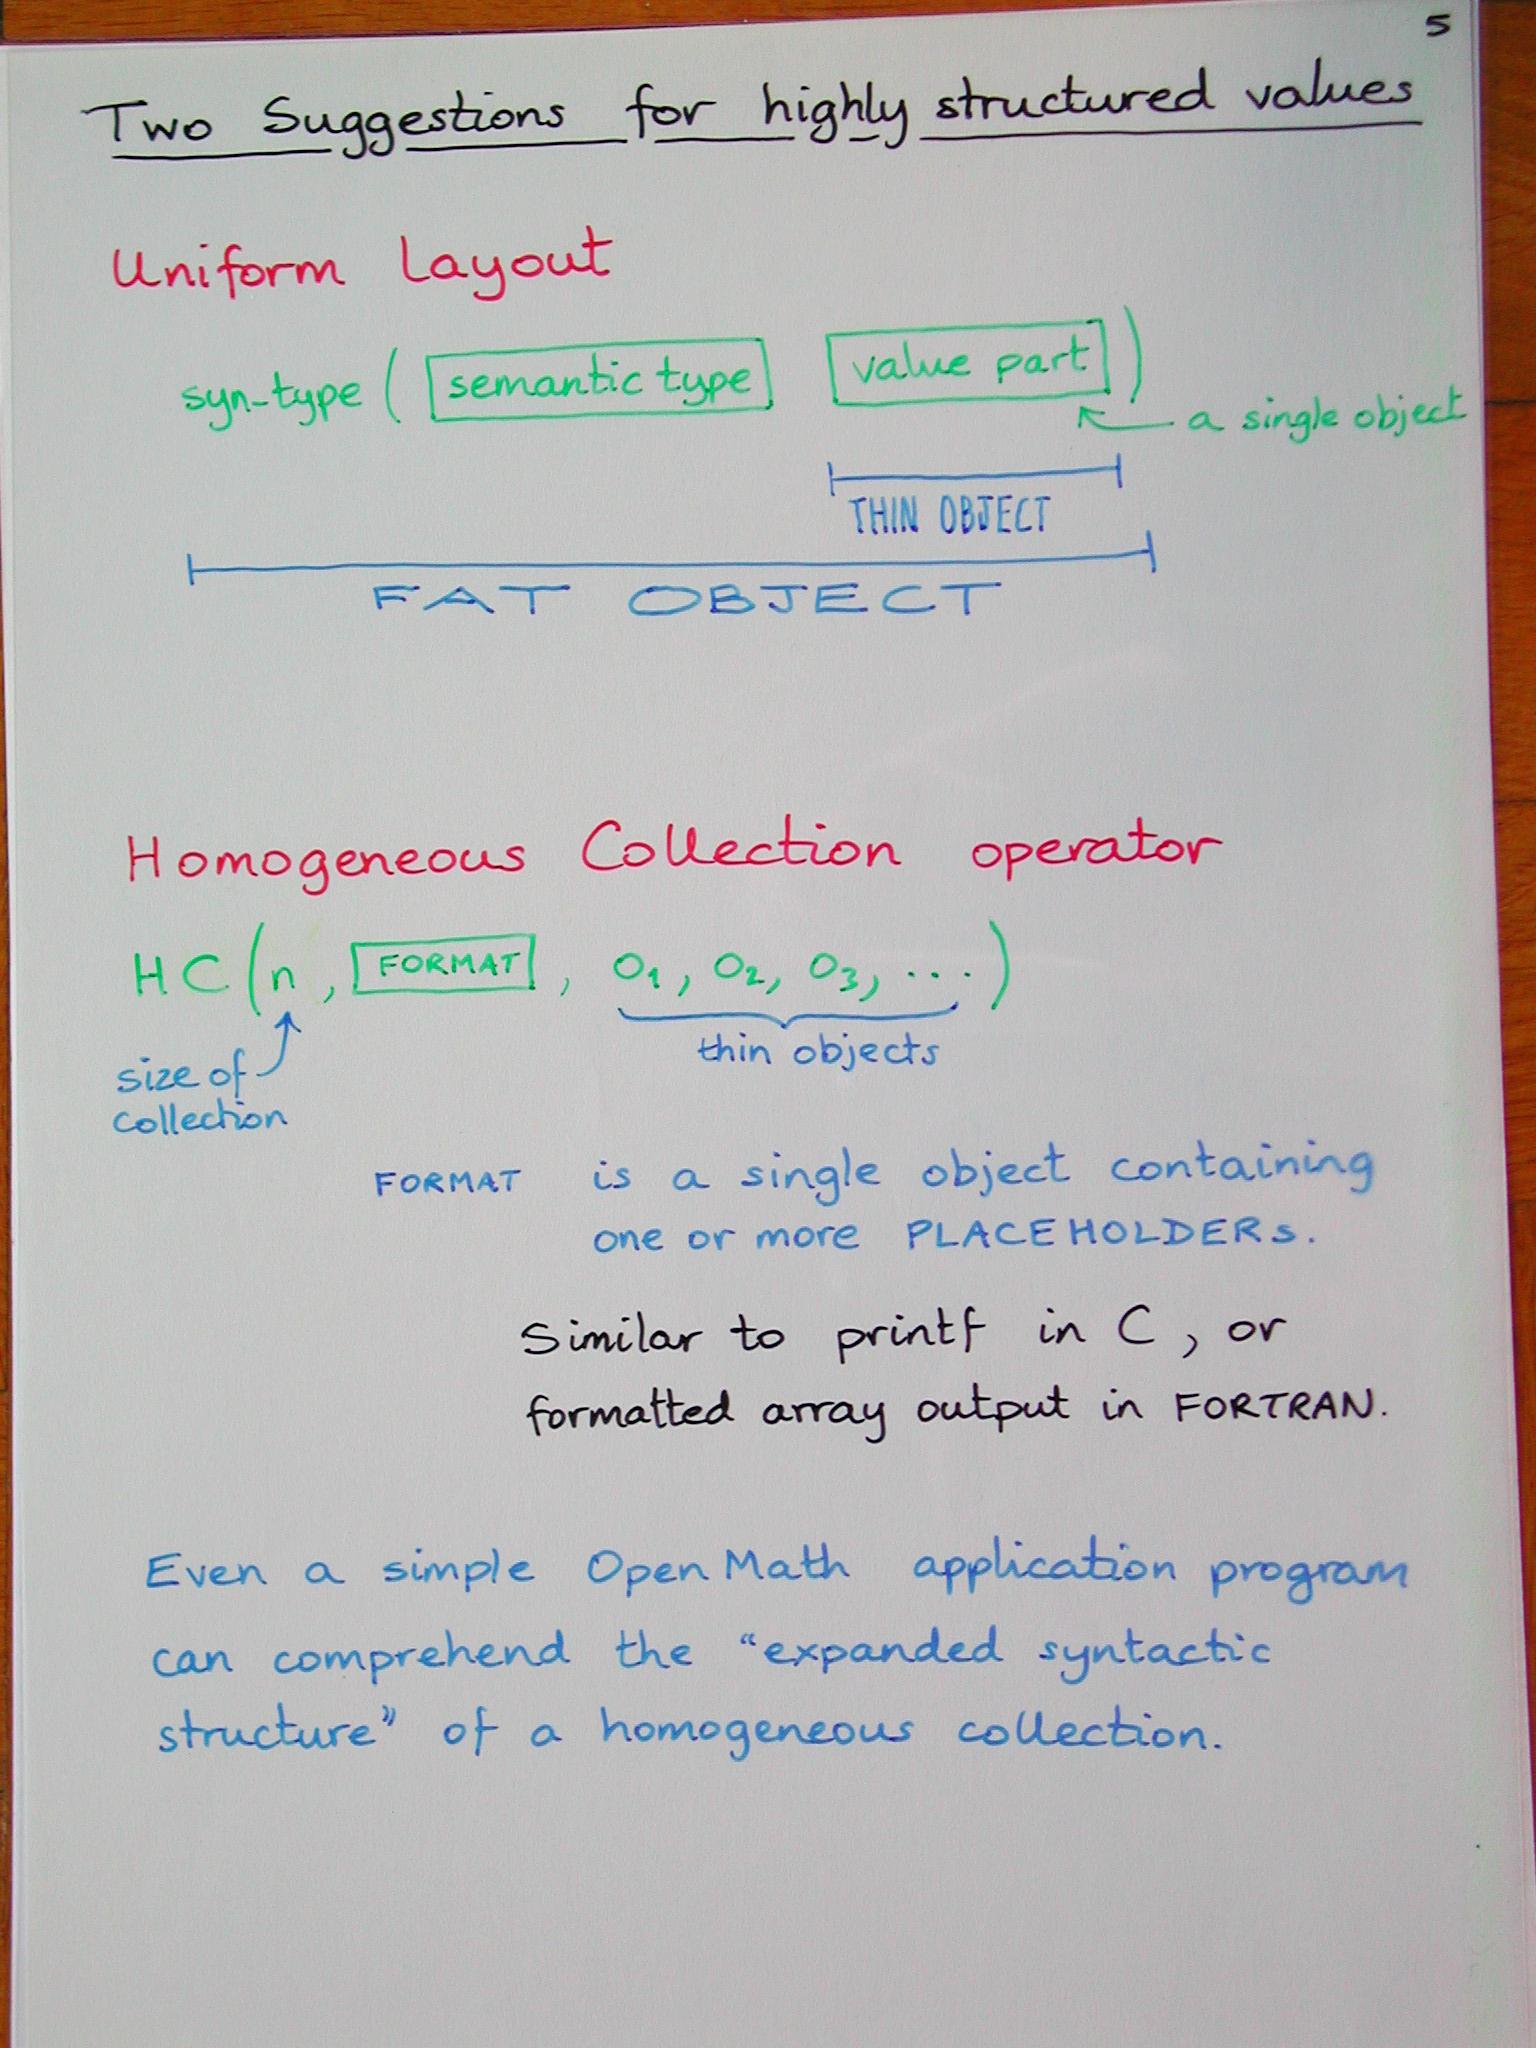 5
Two Suggestions for highly structured values
Uniform Layout
syn-type ( semantic type value part )
a single object
THIN OBJECT
FAT OBJECT
Homogeneous Collection operator
HC(n, FORMAT, O1, O2, O3, ...)
thin objects
size of
collection
FORMAT is a single object containing
one or more PLACEHOLDERs.
Similar to printf in C, or
formatted array output in FORTRAN.
Even a simple OpenMath application program
can comprehend the "expanded syntactic
structure" of a homogeneous collection.